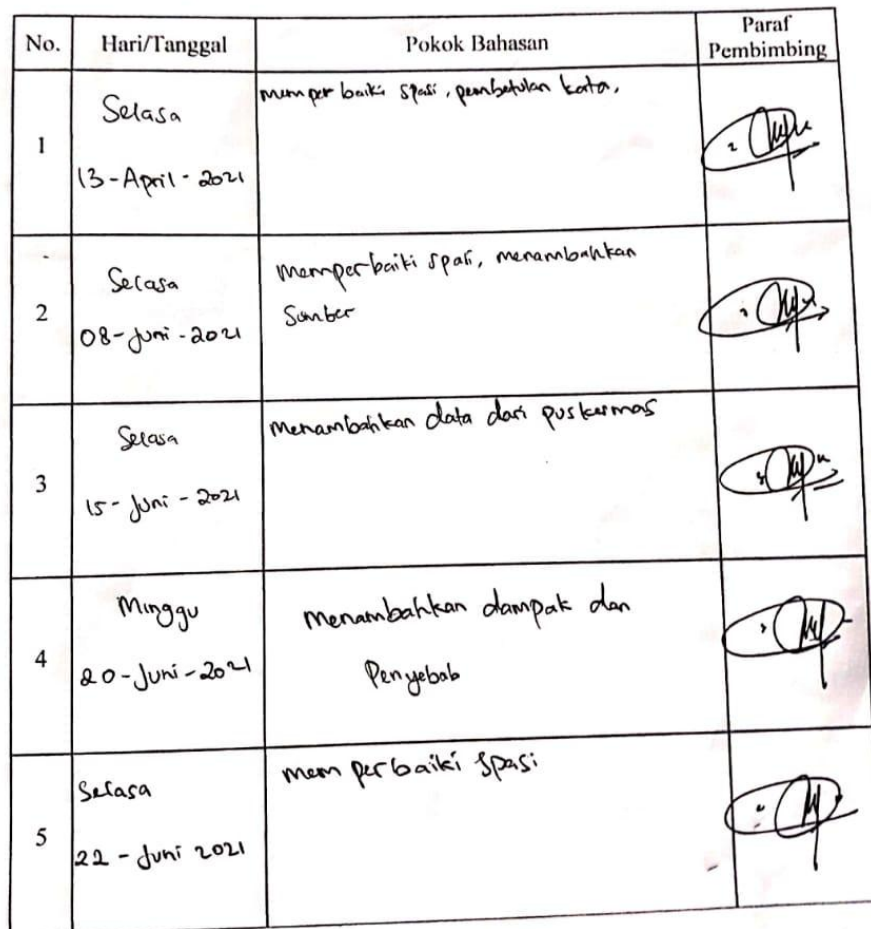 No. Hari/Tanggal Pokok Bahasan Paraf Pembimbing
1 Selasa 13-April-2021 memperbaiki spasi, pembetulan kata,
2 Selasa 08-Juni-2021 Memperbaiki spasi, menambahkan
Sumber
3 Selasa 15-Juni-2021 Menambahkan data dari puskesmas
4 Minggu 20-Juni-2021 Menambahkan dampak dan
Penyebab
5 Selasa 22-Juni 2021 memperbaiki spasi